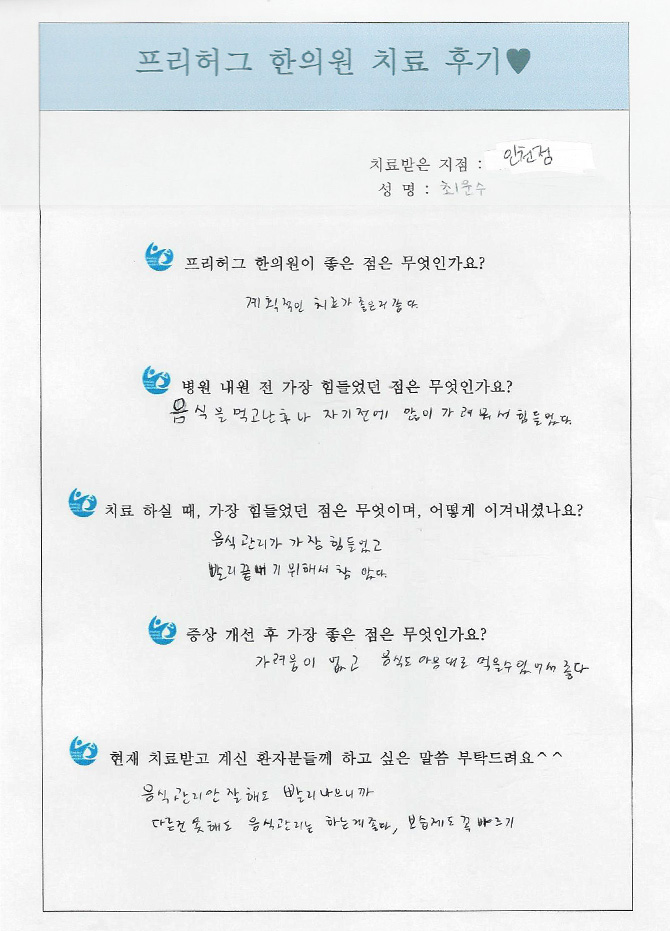 프리허그 한의원 치료 후기♥
치료받은 지점 : 인천점
성 명 : 최윤수
프리허그 한의원이 좋은 점은 무엇인가요?
계획적인 치료가 좋은거 같다.
병원 내원 전 가장 힘들었던 점은 무엇인가요?
음식을 먹고난후나 자기전에 많이 가려워서 힘들었다.
치료 하실 때, 가장 힘들었던 점은 무엇이며, 어떻게 이겨내셨나요?
음식관리가 가장 힘들었고
빨리끝내기 위해서 참았다.
증상 개선 후 가장 좋은 점은 무엇인가요?
가려움이 없고 음식도 마음대로 먹을수있어서 좋다
현재 치료받고 계신 환자분들께 하고 싶은 말씀 부탁드려요^^
음식관리만 잘해도 빨리나으니까
다른건 못해도 음식관리는 하는게좋다, 보습제도 꼭 바르기